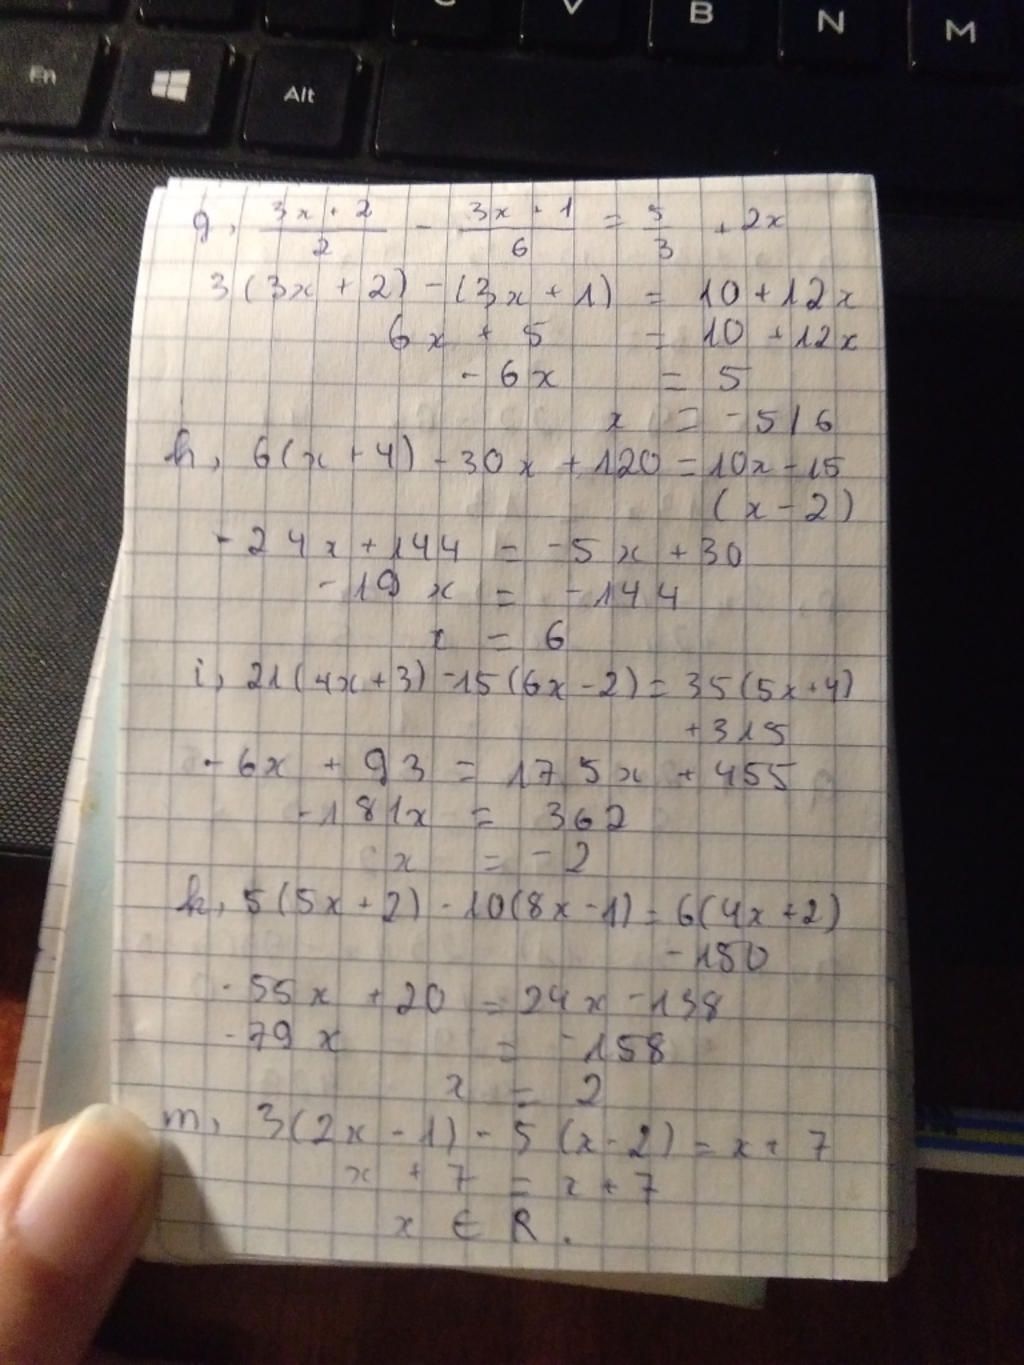 C V B N M
Fn Alt
g, (3x + 2)/2 - (3x + 1)/6 = 5/3 + 2x
3(3x + 2) - (3x + 1) = 10 + 12x
6x + 5 = 10 + 12x
- 6x = 5
x = - 5/6
h, 6(x + 4) - 30x + 120 = 10x - 15
(x - 2)
- 24x + 144 = - 5x + 30
- 19x = - 144
x = 6
i, 21(4x + 3) - 15(6x - 2) = 35(5x + 4)
+ 315
- 6x + 93 = 175x + 455
- 181x = 362
x = - 2
k, 5(5x + 2) - 10(8x - 1) = 6(4x + 2)
- 150
- 55x + 20 = 24x - 138
- 79x = - 158
x = 2
m, 3(2x - 1) - 5(x - 2) = x + 7
x + 7 = x + 7
x ∈ R.